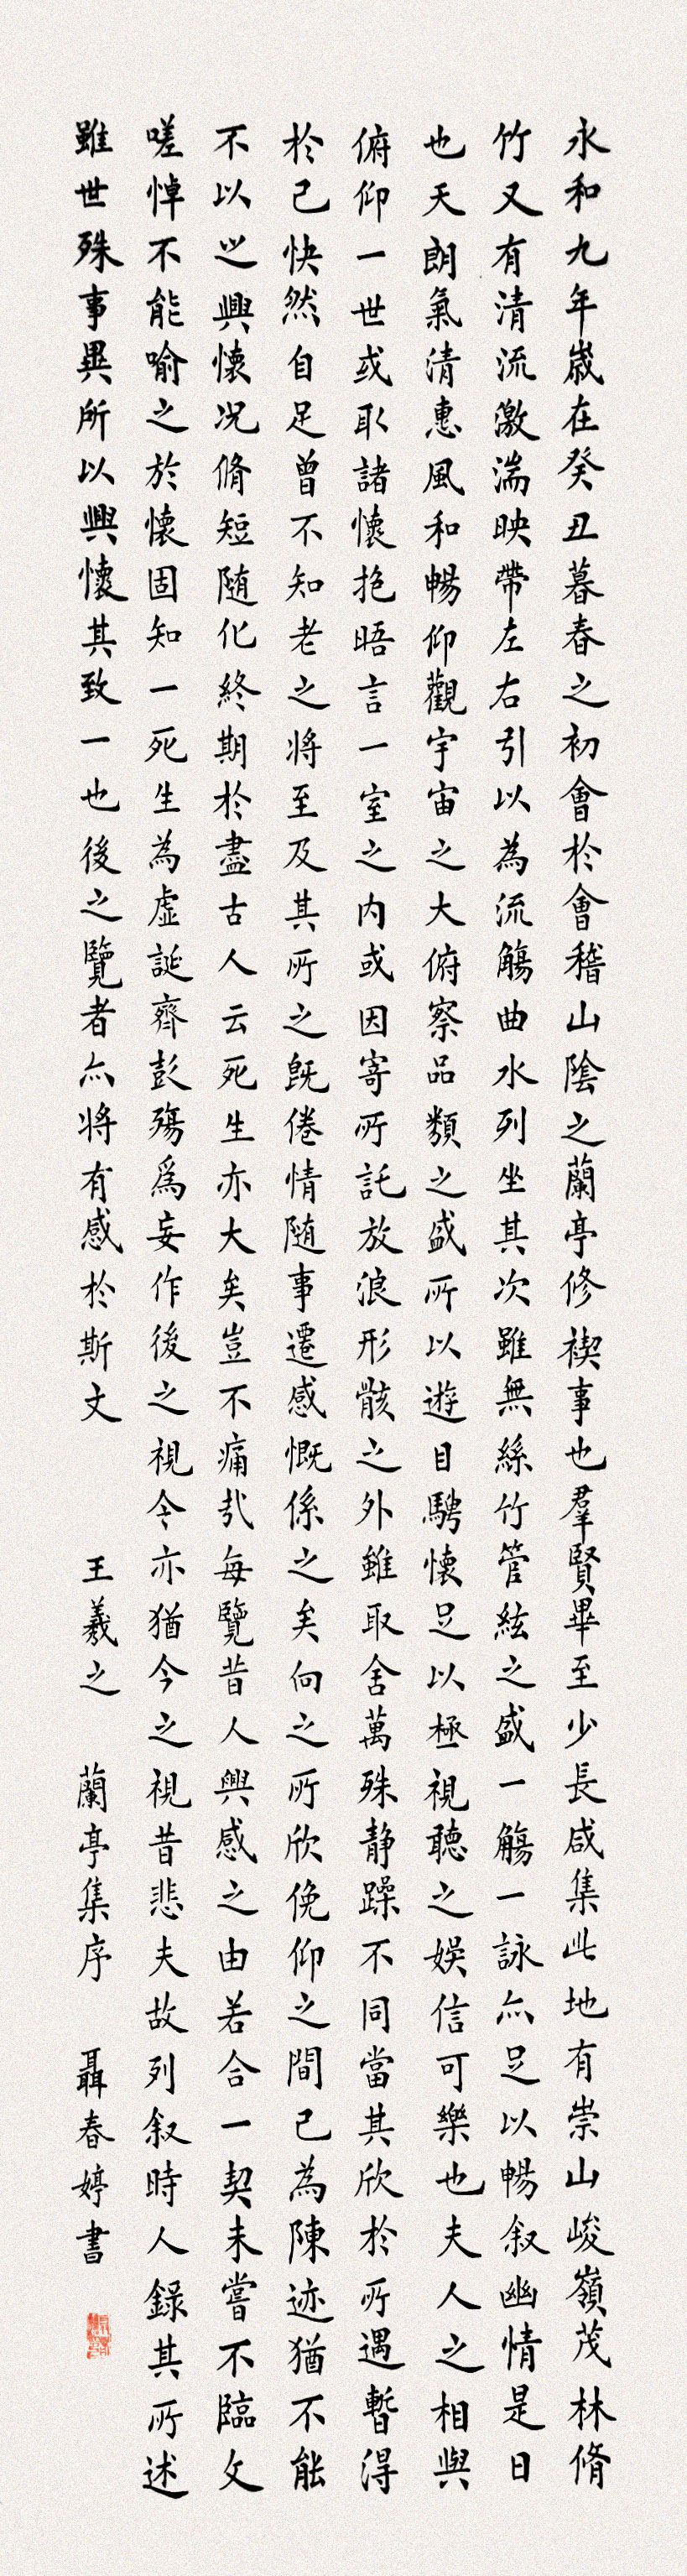 永和九年嵗在癸丑暮春之初會於會稽山陰之蘭亭修禊事也羣賢畢至少長咸集此地有崇山峻嶺茂林脩
竹又有清流激湍映帶左右引以為流觴曲水列坐其次雖無絲竹管絃之盛一觴一詠亦足以暢叙幽情是日
也天朗氣清惠風和暢仰觀宇宙之大俯察品類之盛所以遊目騁懷足以極視聽之娛信可樂也夫人之相與
俯仰一世或取諸懷抱晤言一室之内或因寄所託放浪形骸之外雖取舍萬殊静躁不同當其欣於所遇暫得
於己快然自足曾不知老之将至及其所之既倦情随事遷感慨係之矣向之所欣俛仰之間已為陳迹猶不能
不以之興懷况脩短随化終期於盡古人云死生亦大矣豈不痛哉每覽昔人興感之由若合一契未嘗不臨文
嗟悼不能喻之於懷固知一死生為虛誕齊彭殤爲妄作後之視今亦猶今之視昔悲夫故列叙時人錄其所述
雖世殊事異所以興懷其致一也後之覽者亦将有感於斯文 王羲之 蘭亭集序 聶春婷書